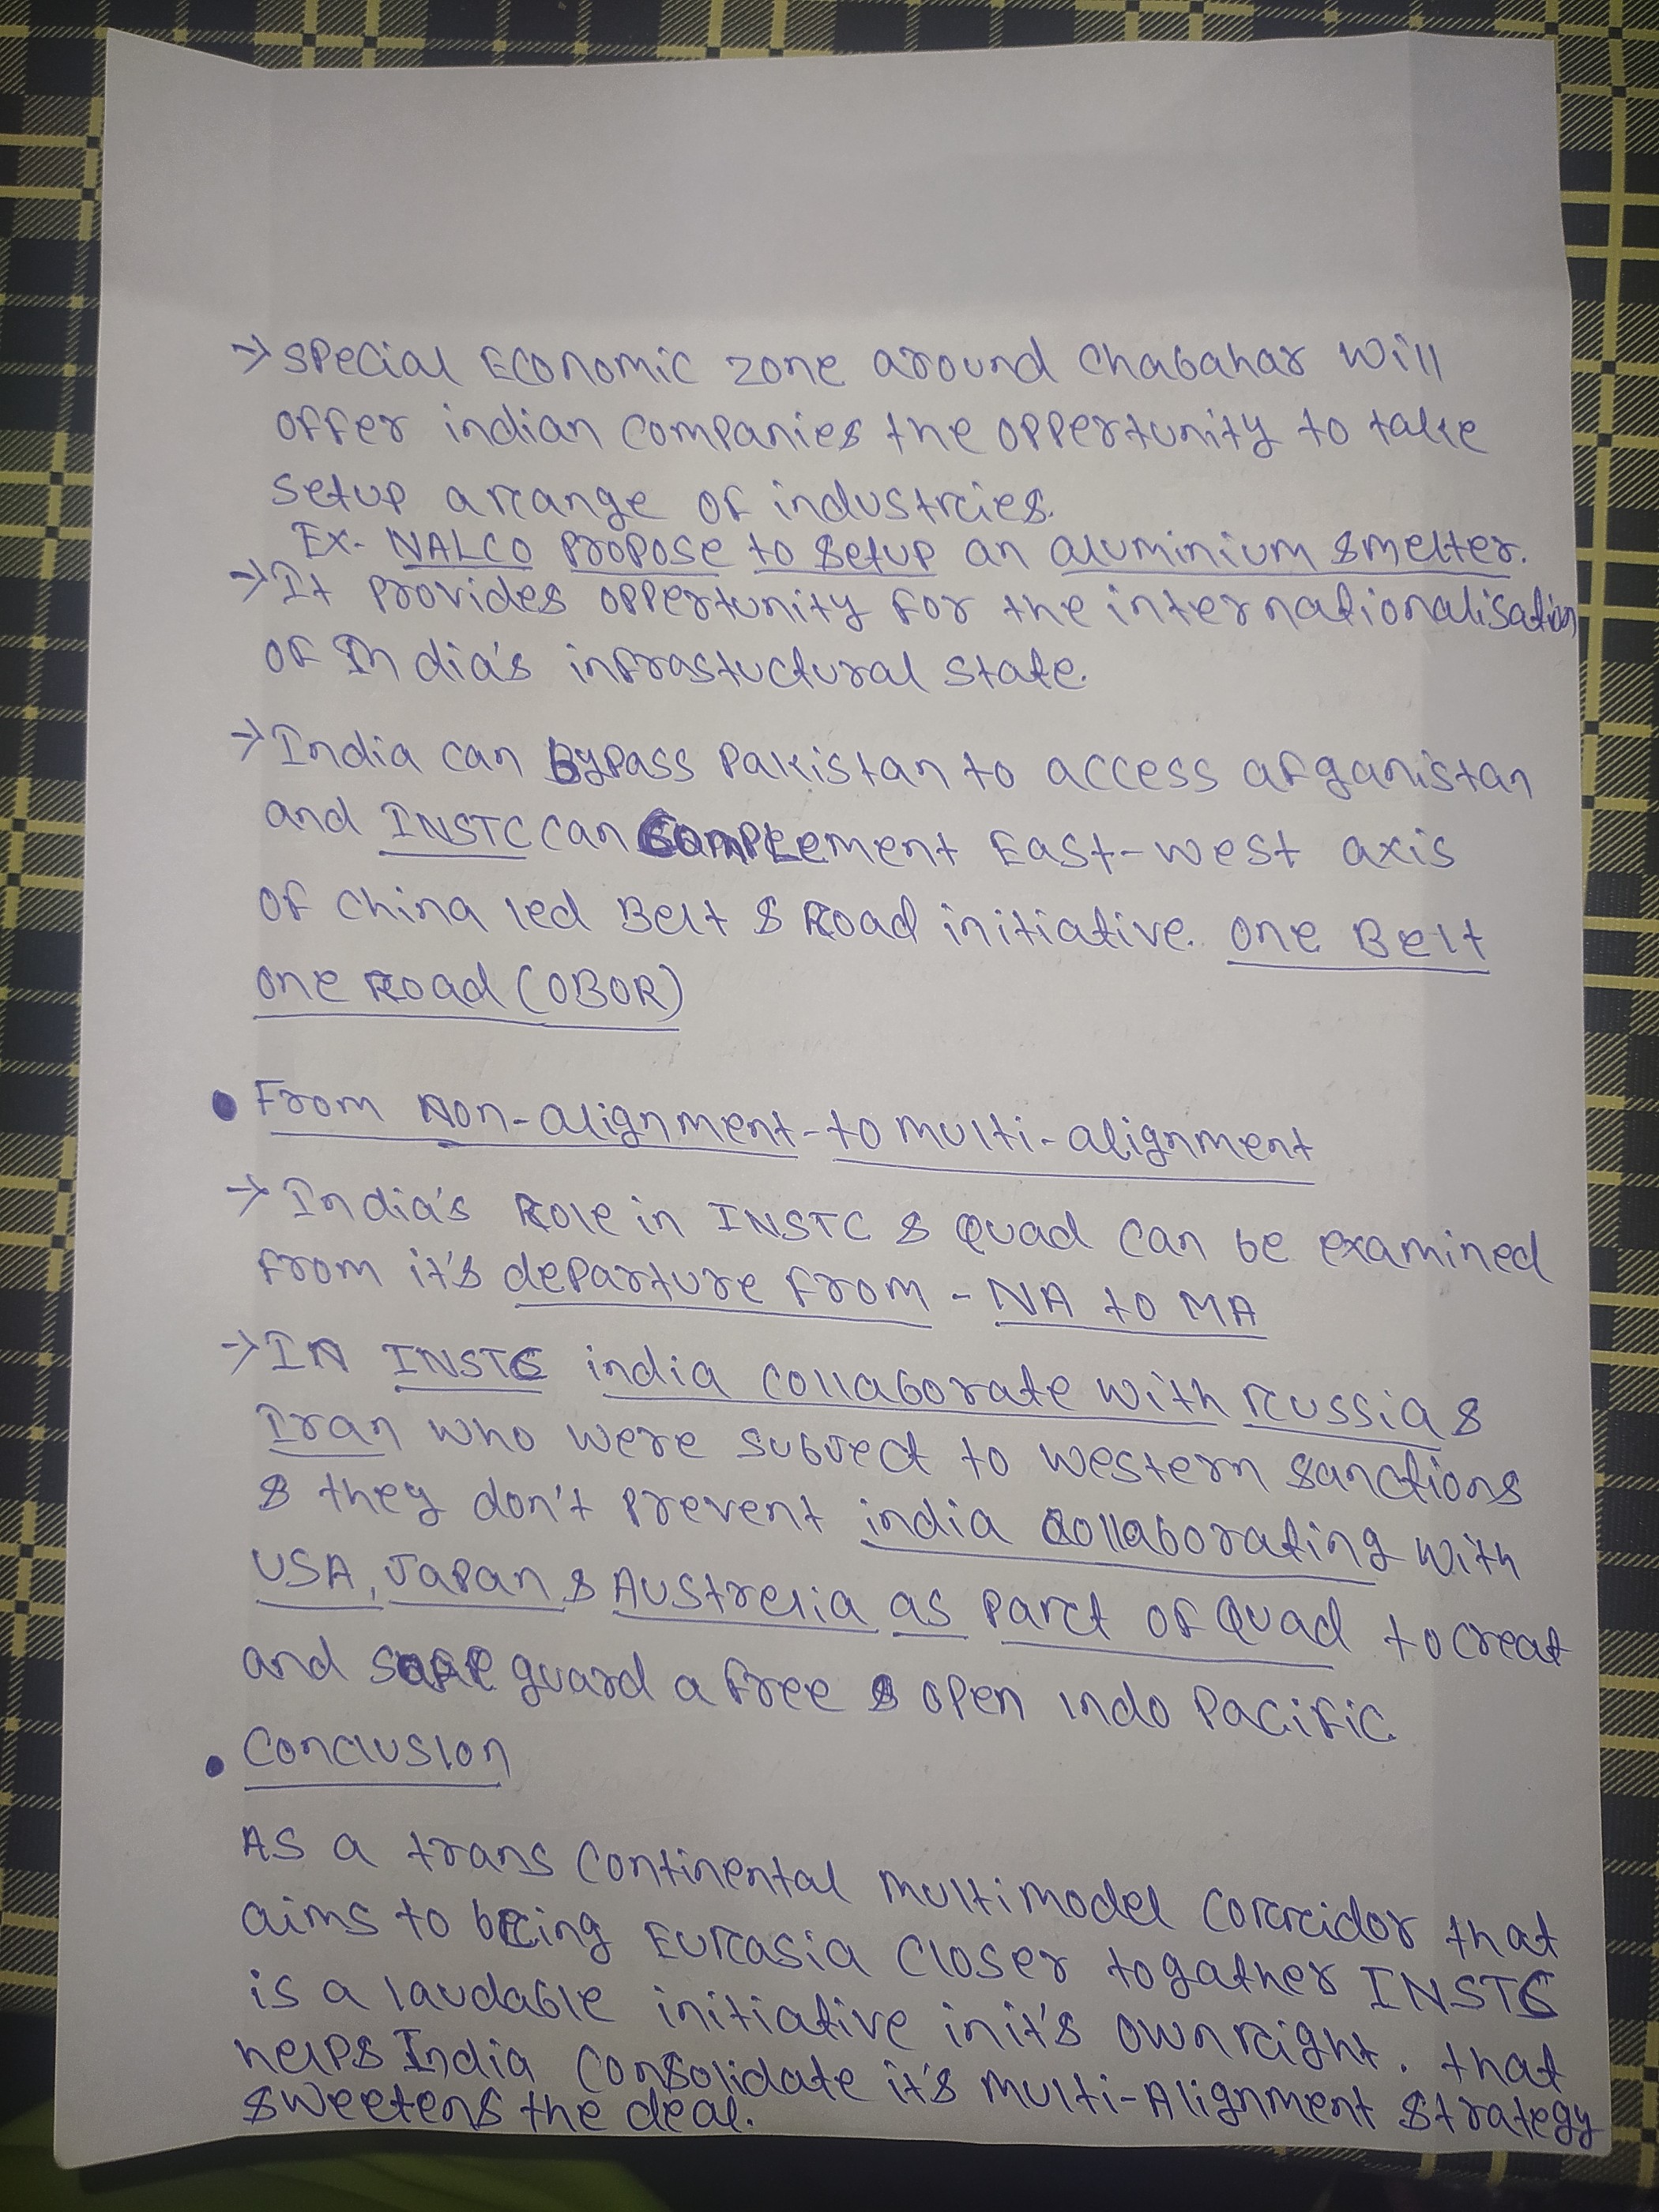 → Special Economic zone around Chabahar will
offer indian companies the oppertunity to take
setup a range of industries.
Ex- NALCO propose to setup an aluminium smelter.
→ It provides oppertunity for the internationalisation
of India's infrastuctural state.
→ India can bypass Pakistan to access afganistan
and INSTC can Complement East-west axis
of China led Belt & Road initiative. One Belt
One Road (OBOR)
• From Non-alignment-to multi-alignment
→ India's Role in INSTC & Quad can be examined
from it's departure from - NA to MA
→ In INSTC india collaborate with russia &
Iran who were subject to western sanctions
& they don't prevent india collaborating with
USA, Japan & Austrelia as part of Quad to creat
and safe guard a free & open indo pacific.
• Conclusion
As a trans continental multimodel corridor that
aims to bring Eurasia closer togather INSTC
is a laudable initiative in it's own right. that
helps India consolidate it's multi-Alignment strategy
sweetens the deal.